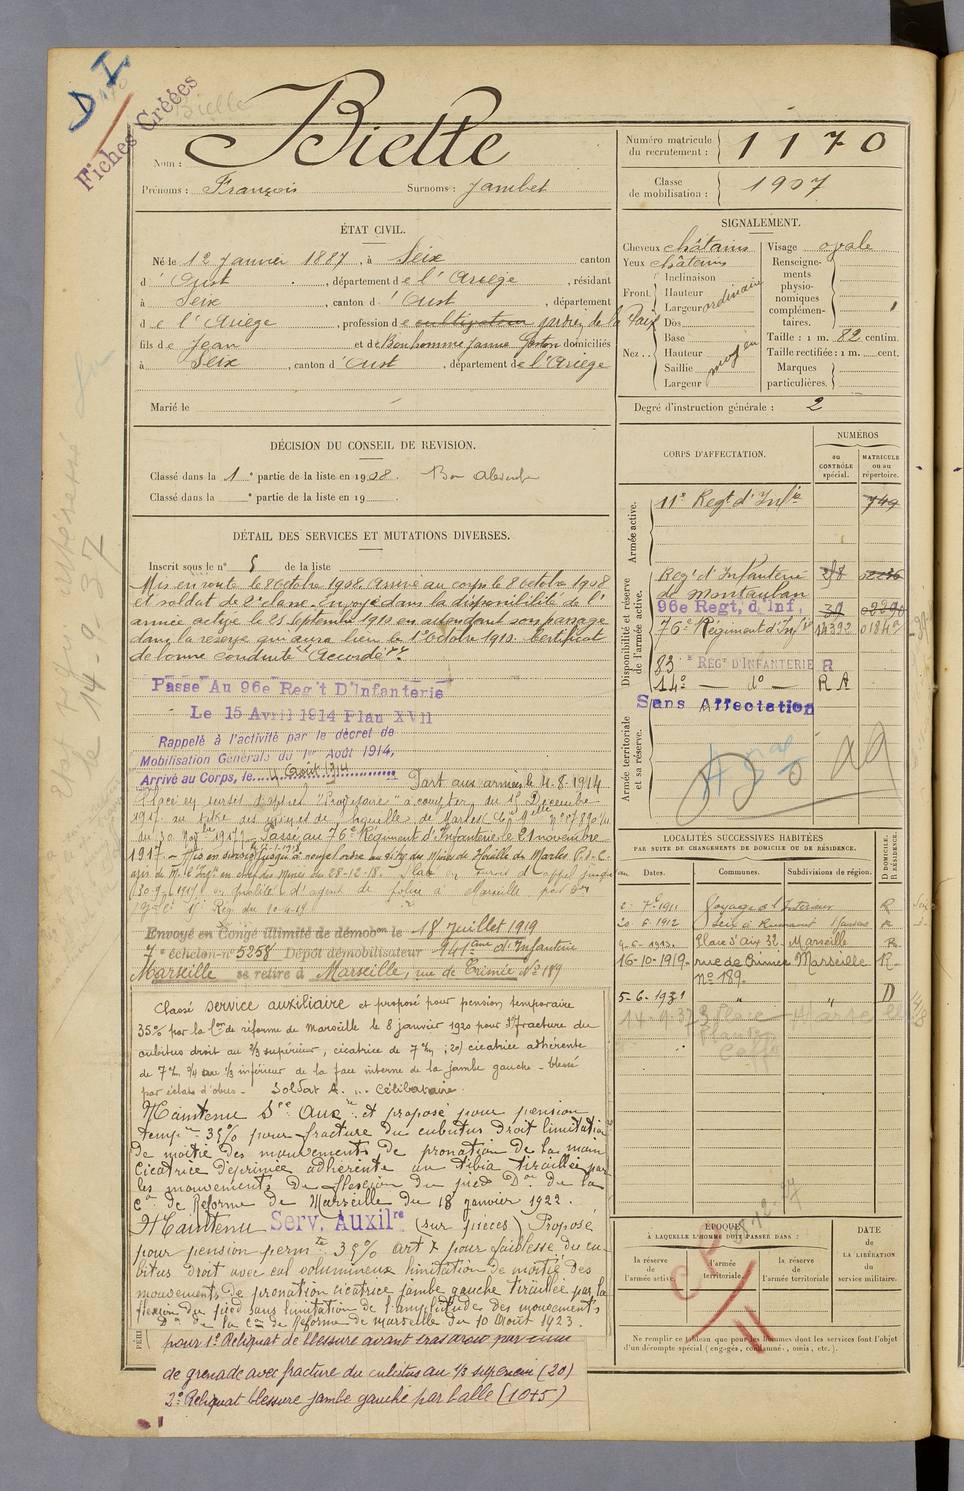 D I
Fiches Créées
Bielle
Nom : Bielle
Prénoms : François Surnoms : Jambet
Numéro matricule du recrutement : 1170
Classe de mobilisation : 1907
ÉTAT CIVIL.
Né le 12 Janvier 1887, à Seix canton
d'Oust, département de l'Ariège, résidant
à Seix, canton d'Oust, département
de l'Ariège, profession de cultivateur gardien de la Paix
fils de Jean et de Bonhomme Jeanne domiciliés
à Seix, canton d'Oust, département de l'Ariège
Marié le
SIGNALEMENT.
Cheveux châtains
Yeux châtains
Front Inclinaison
Hauteur ordinaire
Largeur
Nez Dos
Base
Hauteur moyen
Saillie
Largeur
Visage ovale
Renseignements physionomiques complémentaires.
Taille : 1 m. 82 centim.
Taille rectifiée : 1 m. cent.
Marques particulières.
Degré d'instruction générale : 2
DÉCISION DU CONSEIL DE REVISION.
Classé dans la 1e partie de la liste en 1908. Bon
Classé dans la e partie de la liste en 19
DÉTAIL DES SERVICES ET MUTATIONS DIVERSES.
Inscrit sous le n° 5 de la liste
Mis en route le 8 Octobre 1908. Arrivé au corps le 8 octobre 1908
et soldat de 2e classe. Envoyé dans la disponibilité de l'
armée active le 25 Septembre 1910 en attendant son passage
dans la réserve qui aura lieu le 1er Octobre 1910. Certificat
de bonne conduite Accordé
Passé Au 96e Reg't D'Infanterie
Le 15 Avril 1914 Plan XVII
Rappelé à l'activité par le décret de
Mobilisation Générale du 1er Août 1914,
Arrivé au Corps, le 4 Août 1914 Part aux armées le 4-8-1914
Placé en sursis d'appel à compter du 1er Décembre
1917 au titre des mines de houilles de Marles
du 30 1917. Passé au 76e Régiment d'Infanterie le 21 novembre
1917. Mis en sursis jusqu'à nouvel ordre au titre des Mines de Houille de Marles P.-d.-C.
avis de Mr l'Ingr en chef des Mines du 28-12-18. Placé en sursis d'appel jusqu'
30-9-1919 en qualité d'agent de police à Marseille
Envoyé en Congé illimité de démobon le 18 Juillet 1919
7e échelon-n° 5258 Dépôt démobilisateur 141ème d'Infanterie
Marseille se retire à Marseille, rue de Crimée N° 189
Classé service auxiliaire et proposé pour pension temporaire
35% par la Con de réforme de Marseille le 8 janvier 1920 pour 1° fracture du
cubitus droit au 1/3 supérieur, cicatrice de 7 %m ; 2°) cicatrice adhérente
de 7 %m au 1/3 inférieur de la face interne de la jambe gauche - blessé
par éclats d'obus. Soldat A. Célibataire.
Maintenu Sce Auxre et proposé pour pension
tempre 35% pour fracture du cubitus droit limitation
de moitié des mouvements de pronation de la main
Cicatrice déprimée adhérente au tibia tiraillée par
les mouvements de flexion du pied Don de la
Con de Réforme de Marseille du 18 janvier 1922.
Maintenu Serv. Auxilre (sur pièces) Proposé
pour pension permte 35% art 7 pour faiblesse du cu-
bitus droit avec cal volumineux limitation de moitié des
mouvements de pronation cicatrice jambe gauche tiraillée par la
flexion du pied sans limitation de l'amplitude des mouvements
Don de la Con de Réforme de Marseille du 10 Août 1923.
pour 1° Reliquat de blessure avant bras droit par
de grenade avec fracture du cubitus au 1/3 supérieur (20)
2° Reliquat blessure jambe gauche par balle (10+5)
CORPS D'AFFECTATION.
NUMÉROS
au CONTRÔLE spécial.
MATRICULE ou au répertoire.
Armée active.
11e Regt d'Infie 749
Disponibilité et réserve de l'armée active.
Regt d'Infanterie
de Montauban
96e Regt, d'Inf,
76e Régiment d'Infie 14392
83e REGt D'INFANTERIE R
14e — do — R A
Sans Affectation
Armée territoriale et sa réserve.
LOCALITÉS SUCCESSIVES HABITÉES
PAR SUITE DE CHANGEMENTS DE DOMICILE OU DE RÉSIDENCE.
Dates. Communes. Subdivisions de région. D DOMICILE. R RÉSIDENCE.
1911 Voyage à l'Intérieur R
20 6 1912 R
9-6-1913. Place d'Aix 32 Marseille R
16-10-1919. rue de Crimée Marseille R
N° 189.
5-6-1931 " " D
14-9-37 3 Place Marseille
ÉPOQUE
À LAQUELLE L'HOMME DOIT PASSER DANS :
la réserve de l'armée active
l'armée territoriale
la réserve de l'armée territoriale
DATE DE LA LIBÉRATION du service militaire.
Ne remplir ce tableau que pour les hommes dont les services font l'objet
d'un décompte spécial (engagés, condamnés, omis, etc.).